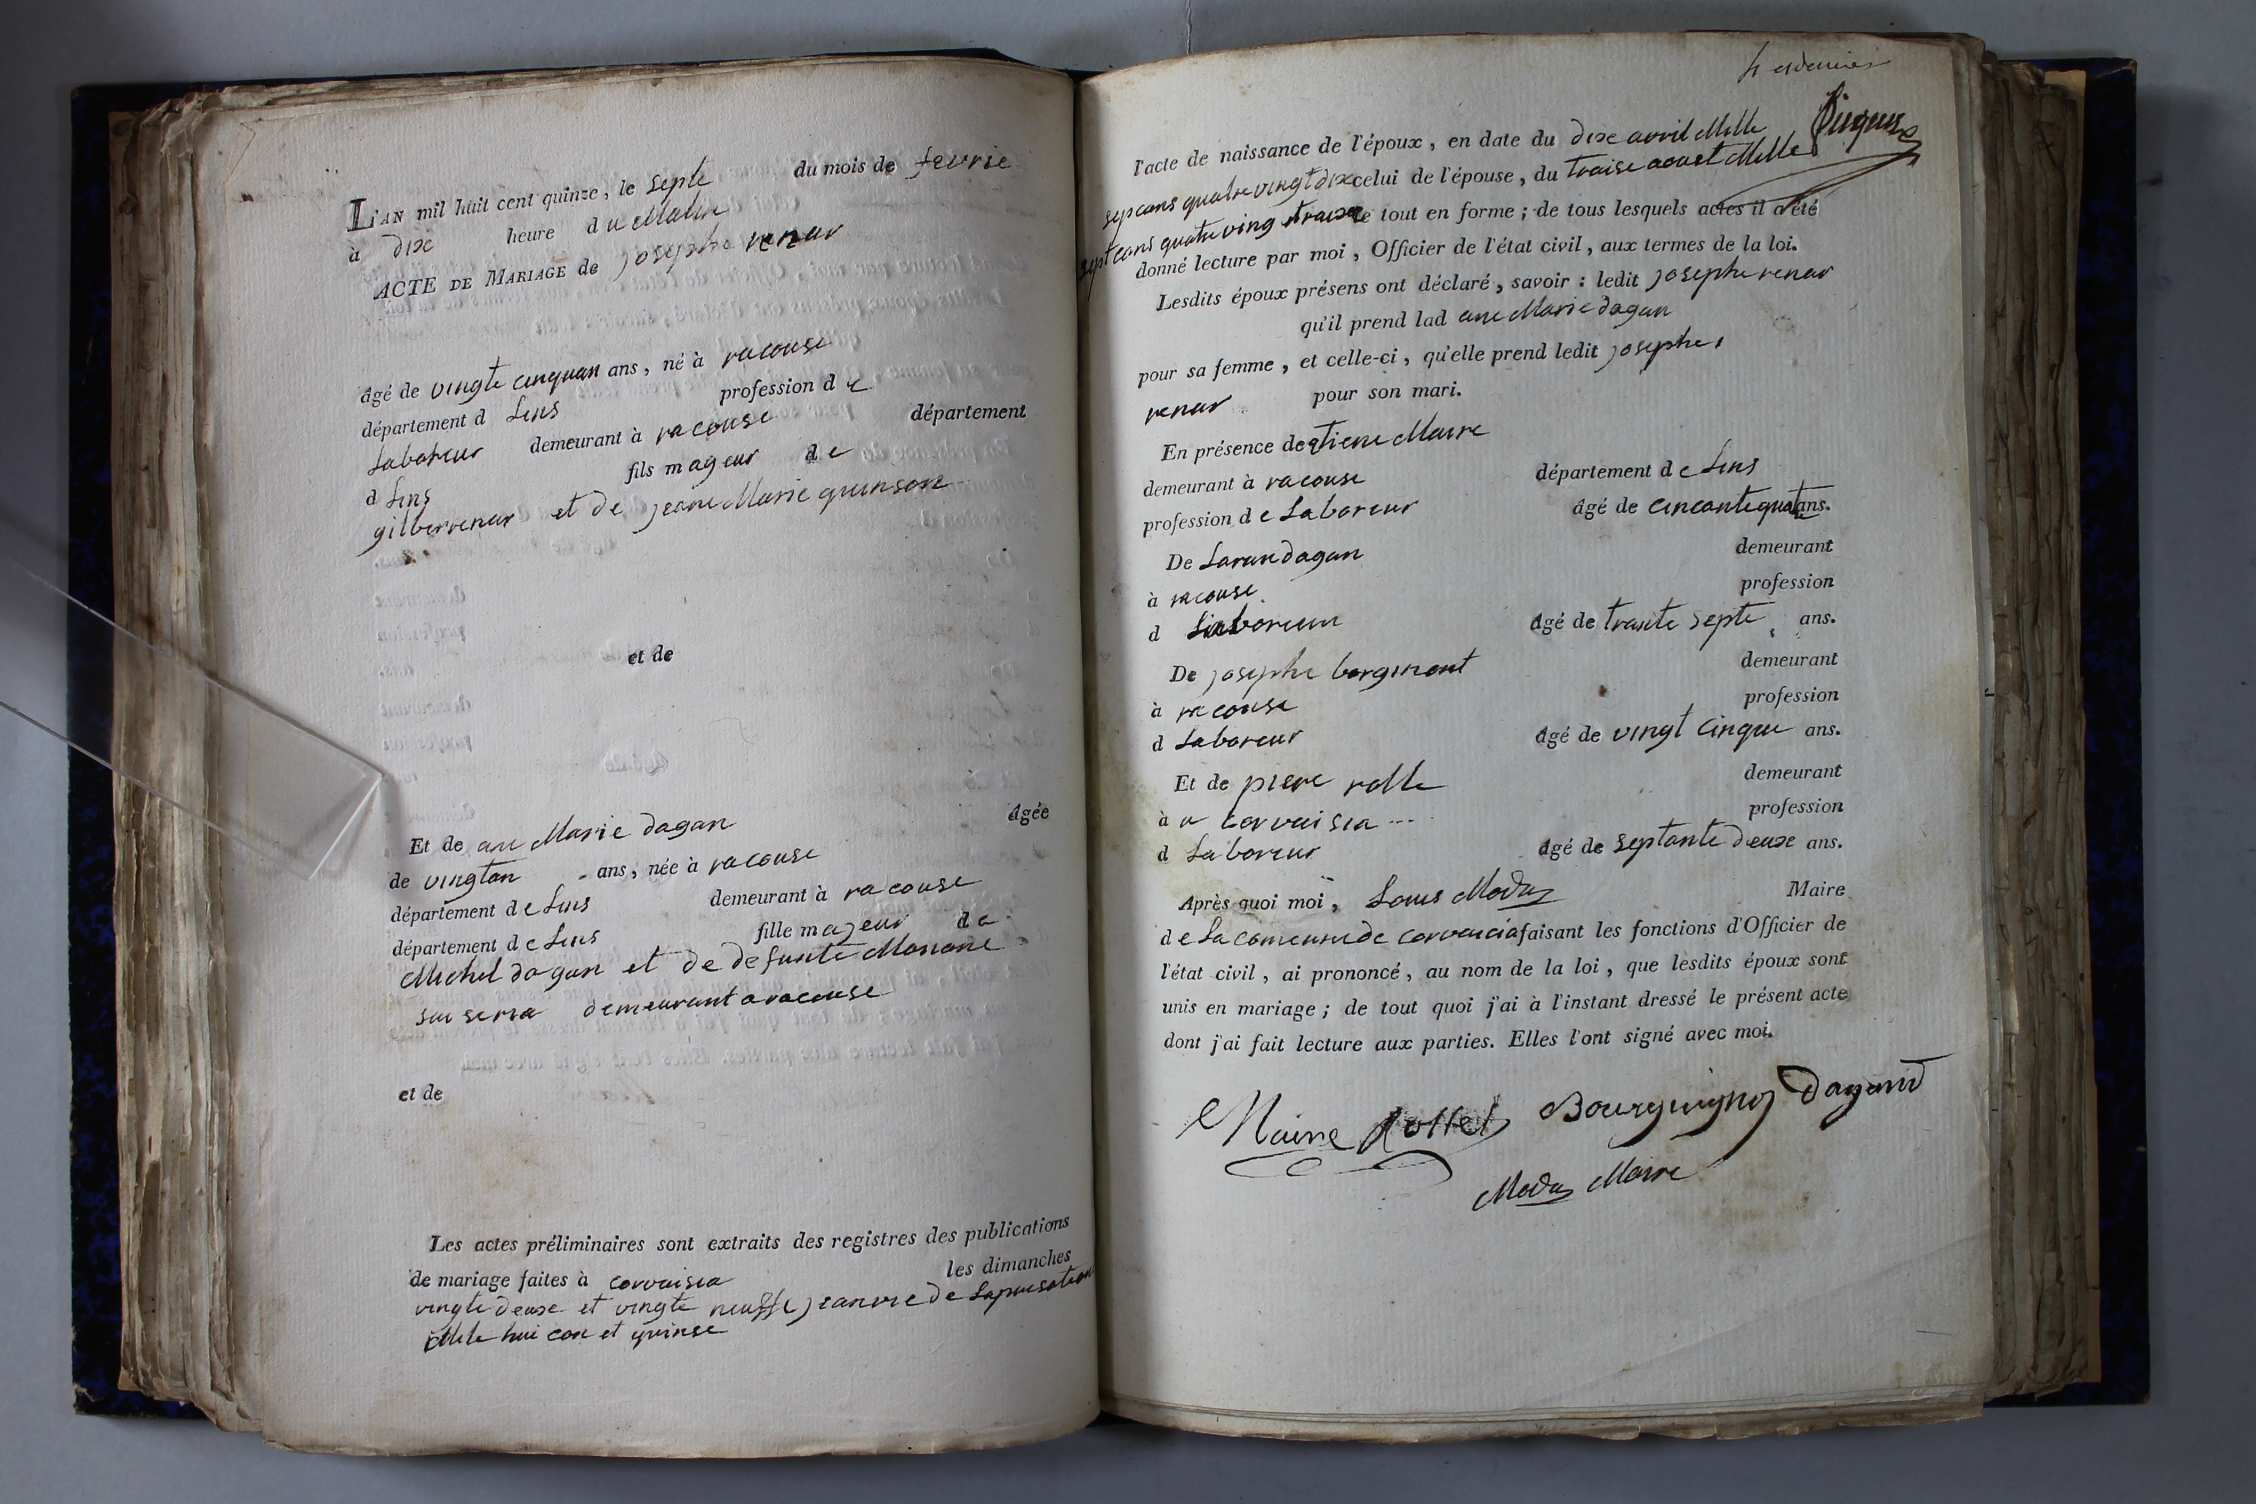 L'AN mil huit cent quinze, le septe du mois de fevrie
à dix heure du Matin
ACTE DE MARIAGE de josephe renar
âgé de vingte cinquan ans, né à racouse
département d Lins profession de
Laboreur demeurant à racouse département
d Lins fils mageur de
gilber renar et de jeane Marie guinson
et de
Et de ane Marie dagan âgée
de vingtan ans, née à racouse
département de Lins demeurant à racouse
département de Lins fille majeur de
Michel dagan et de defunte Mariane
demeurant a racouse
et de
Les actes préliminaires sont extraits des registres des publications
de mariage faites à corvaisia les dimanches
vingte deuxe et vingte neuffe jeanvie de
Mile hui con et quinse
4 et dernier
l'acte de naissance de l'époux, en date du dixe avril Mille
sepcans quatre vingt dix celui de l'épouse, du traise aouet Mille
sept cans quatre ving traize tout en forme; de tous lesquels actes il a été
donné lecture par moi, Officier de l'état civil, aux termes de la loi.
Lesdits époux présens ont déclaré, savoir: ledit josephe renar
qu'il prend lad ane Marie dagan
pour sa femme, et celle-ci, qu'elle prend ledit josephe
renar pour son mari.
En présence de etiene Maire
demeurant à racouse département de Lins
profession de Laboreur âgé de cincante quat ans.
De Laran dagan demeurant
à racouse profession
d Laboreur âgé de trante septe ans.
De josephe borginont demeurant
à racouse profession
d Laboreur âgé de vingt cinque ans.
Et de piere rolle demeurant
à a corvaisia profession
d Laboreur âgé de septante deuxe ans.
Après quoi moi, Louis Modas Maire
de La comeune de corvaisia faisant les fonctions d'Officier de
l'état civil, ai prononcé, au nom de la loi, que lesdits époux sont
unis en mariage; de tout quoi j'ai à l'instant dressé le présent acte
dont j'ai fait lecture aux parties. Elles l'ont signé avec moi.
Maire Rollet Bourguignon Dagand
Modas Maire